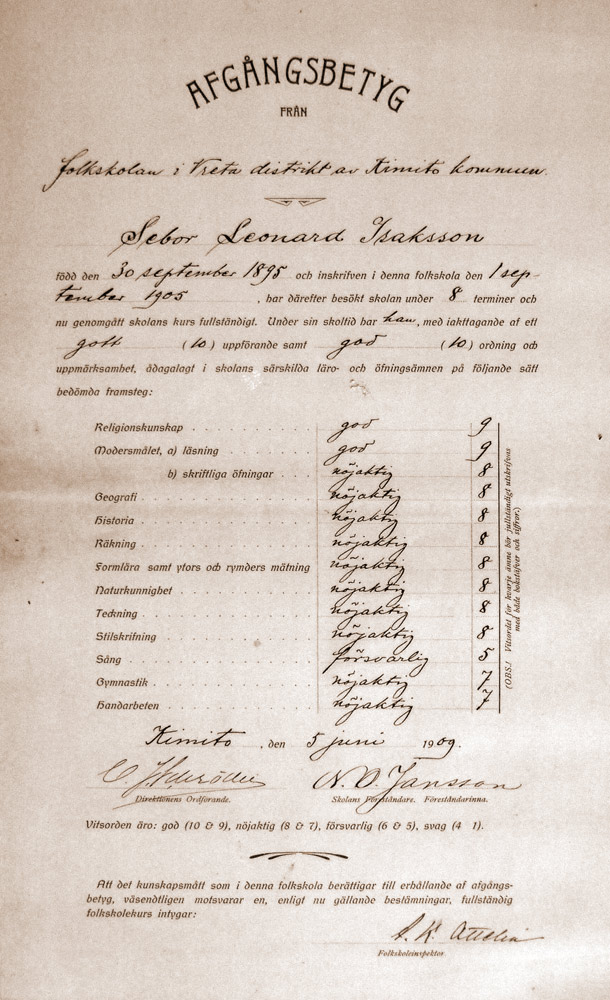 AFGÅNGSBETYG
FRÅN
folkskolan i Vreta distrikt av Kimito kommun.
Sebor Leonard Isaksson
född den 30 september 1895 och inskrifven i denna folkskola den 1 sep-
tember 1905, har därefter besökt skolan under 8 terminer och
nu genomgått skolans kurs fullständigt. Under sin skoltid har han, med iakttagande af ett
gott (10) uppförande samt god (10) ordning och
uppmärksamhet, ådagalagt i skolans särskilda läro- och öfningsämnen på följande sätt
bedömda framsteg:
Religionskunskap . . . . . . . . . god 9
Modersmålet, a) läsning . . . . . . god 9
b) skriftliga öfningar . . . . nöjaktig 8
Geografi . . . . . . . . . . . . . nöjaktig 8
Historia . . . . . . . . . . . . . nöjaktig 8
Räkning . . . . . . . . . . . . . nöjaktig 8
Formlära samt ytors och rymders mätning nöjaktig 8
Naturkunnighet . . . . . . . . . . nöjaktig 8
Teckning . . . . . . . . . . . . . nöjaktig 8
Stilskrifning . . . . . . . . . . . nöjaktig 8
Sång . . . . . . . . . . . . . . . försvarlig 5
Gymnastik . . . . . . . . . . . . nöjaktig 7
Handarbeten . . . . . . . . . . . nöjaktig 7
(OBS.! Vitsordet för hvarje ämne bör fullständigt utskrifvas
med både bokstäfver och siffror.)
Kimito, den 5 juni 1909.
N. O. Jansson
Direktionens Ordförande. Skolans Föreståndare. Föreståndarinna.
Vitsorden äro: god (10 & 9), nöjaktig (8 & 7), försvarlig (6 & 5), svag (4 1).
Att det kunskapsmått som i denna folkskola berättigar till erhållande af afgångs-
betyg, väsendtligen motsvarar en, enligt nu gällande bestämningar, fullständig
folkskolekurs intygar:
Folkskoleinspektor.